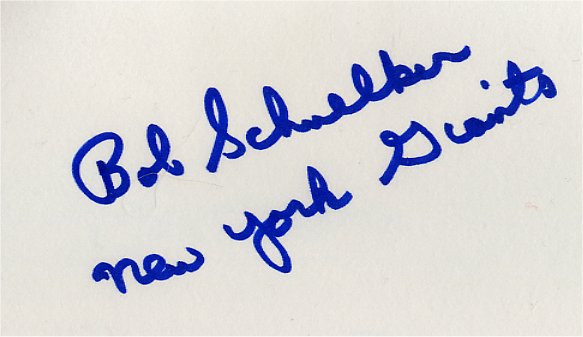 Bob Schnelker
New York Giants